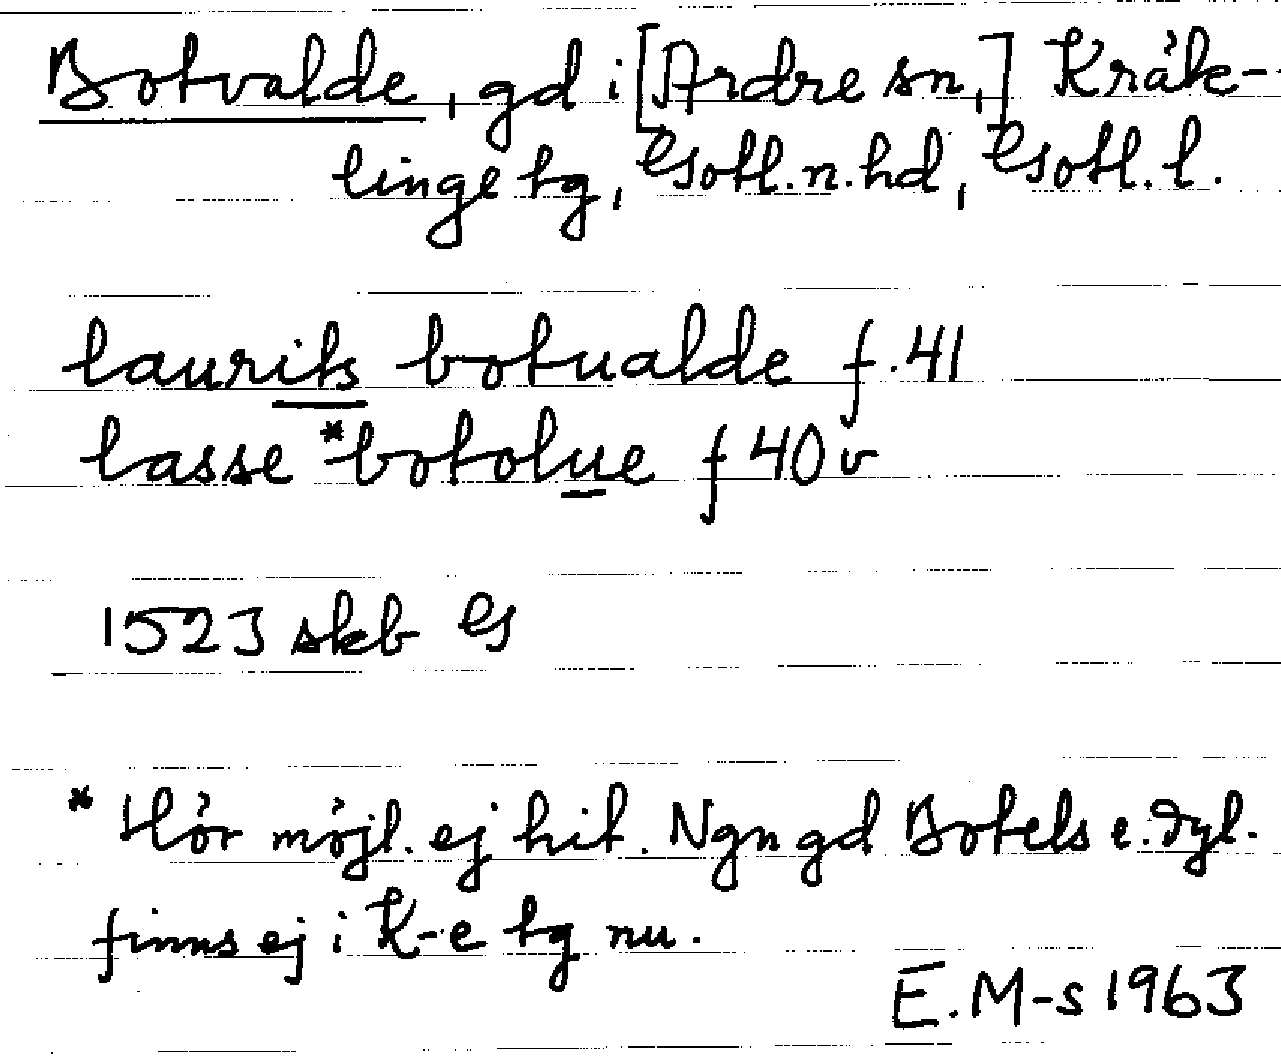 Botvalde, gd i [Ardre sn,] Kräk-
linge tg, Gotl. n. hd, Gotl. l.
laurits botualde f. 41
lasse *botolue f 40 v
1523 skb G
* Hör möjl. ej hit. Ngn gd Botels e. dyl.
finns ej i K-e tg nu.
E. M-s 1963